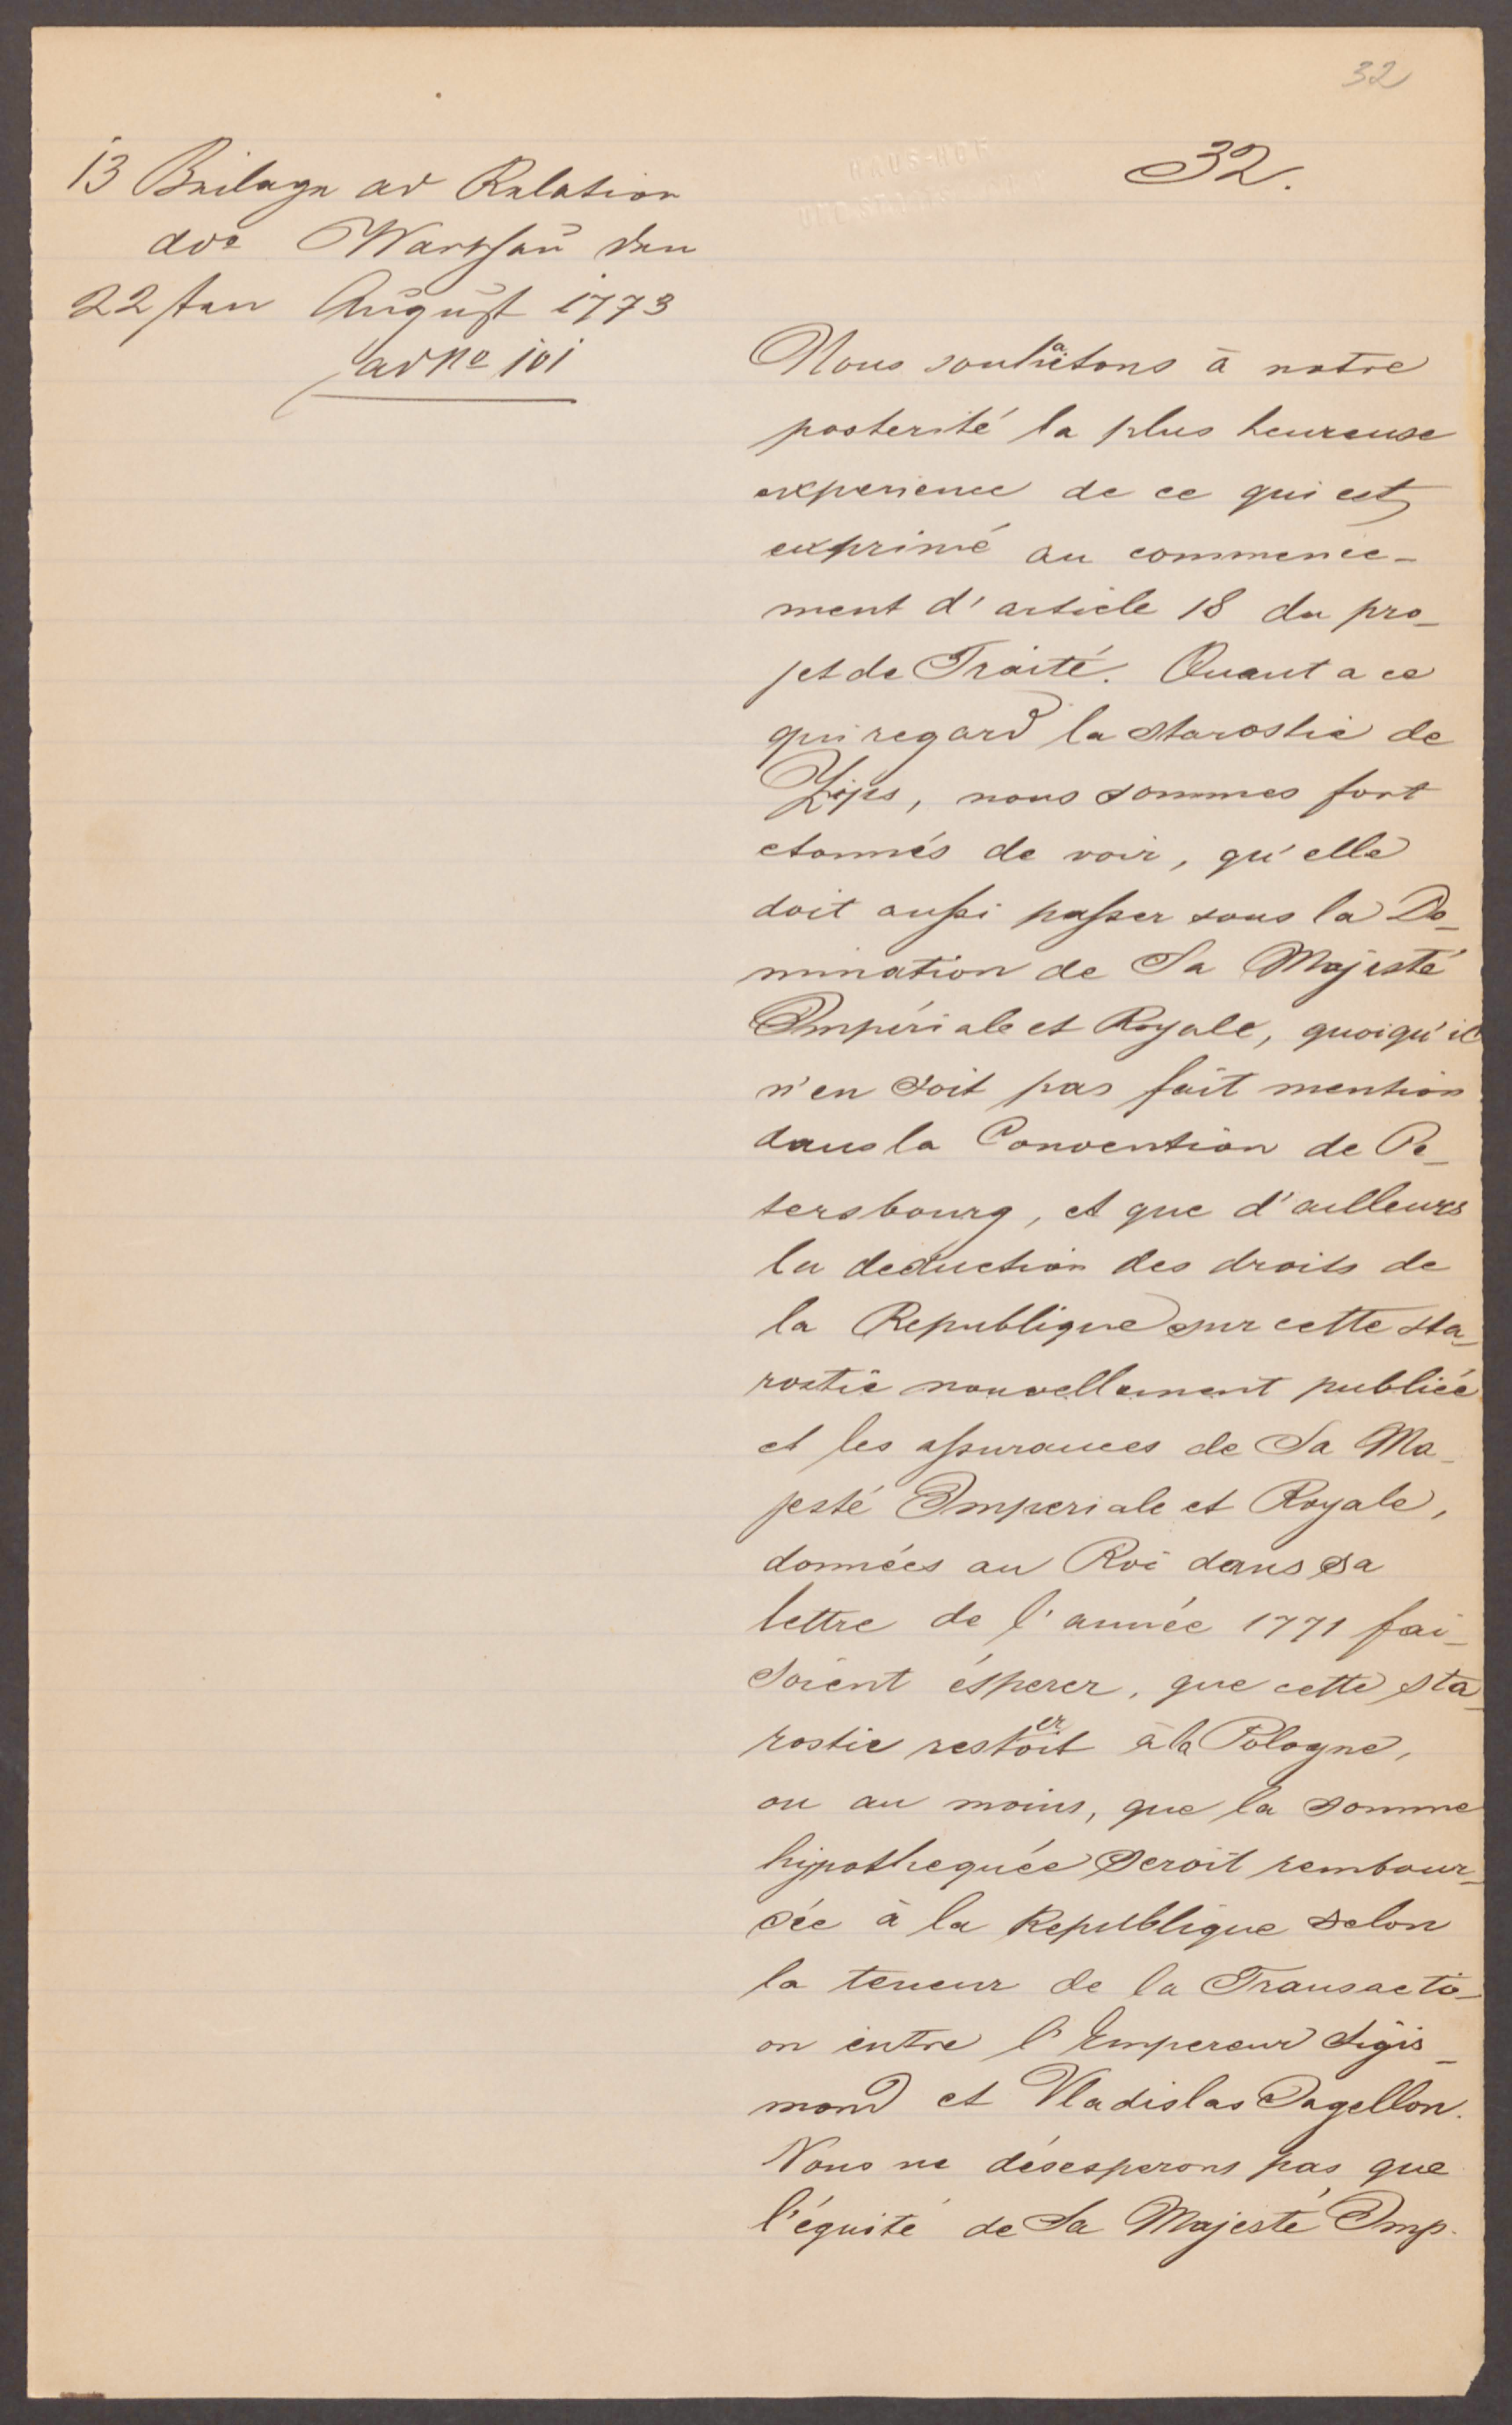 32
32.
13 Beilage ad Relation
ddo Warschau den
22sten August 1773
ad No 101
Nous souhaitons à notre
posterité la plus heureuse
experience de ce qui est
exprimé au commence-
ment d'article 18 du pro-
jet de Traité. Quant a ce
qui regard la starostie de
Zips, nous sommes fort
etonnés de voir, qu'elle
doit aussi passer sous la Do-
mination de Sa Majesté
Impériale et Royale, quoiqu'il
n'en soit pas fait mention
dans la Convention de Pe-
tersbourg, et que d'ailleurs
la deduction des droits de
la Republique sur cette sta-
rostie nouvellement publiée
et les assurances de Sa Ma-
jesté Imperiale et Royale,
données au Roi dans sa
lettre de l'année 1771 fai-
soient ésperer, que cette sta-
rostie resteroit à la Pologne,
ou au moins, que la somme
hipothequée seroit rembour-
sée à la Republique selon
la teneur de la Transacti-
on entre l'Empereur Sigis-
mond et Vladislas Jagellon.
Nous ne désesperons pas que
l'équité de Sa Majesté Imp.